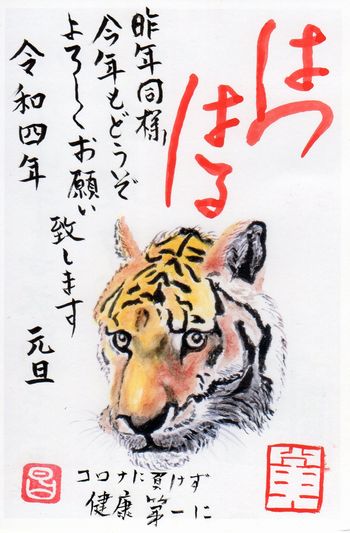 はつ
はる
昨年同様
今年もどうぞ
よろしくお願い
致します
令和四年
元旦
コロナに負けず
健康第一に